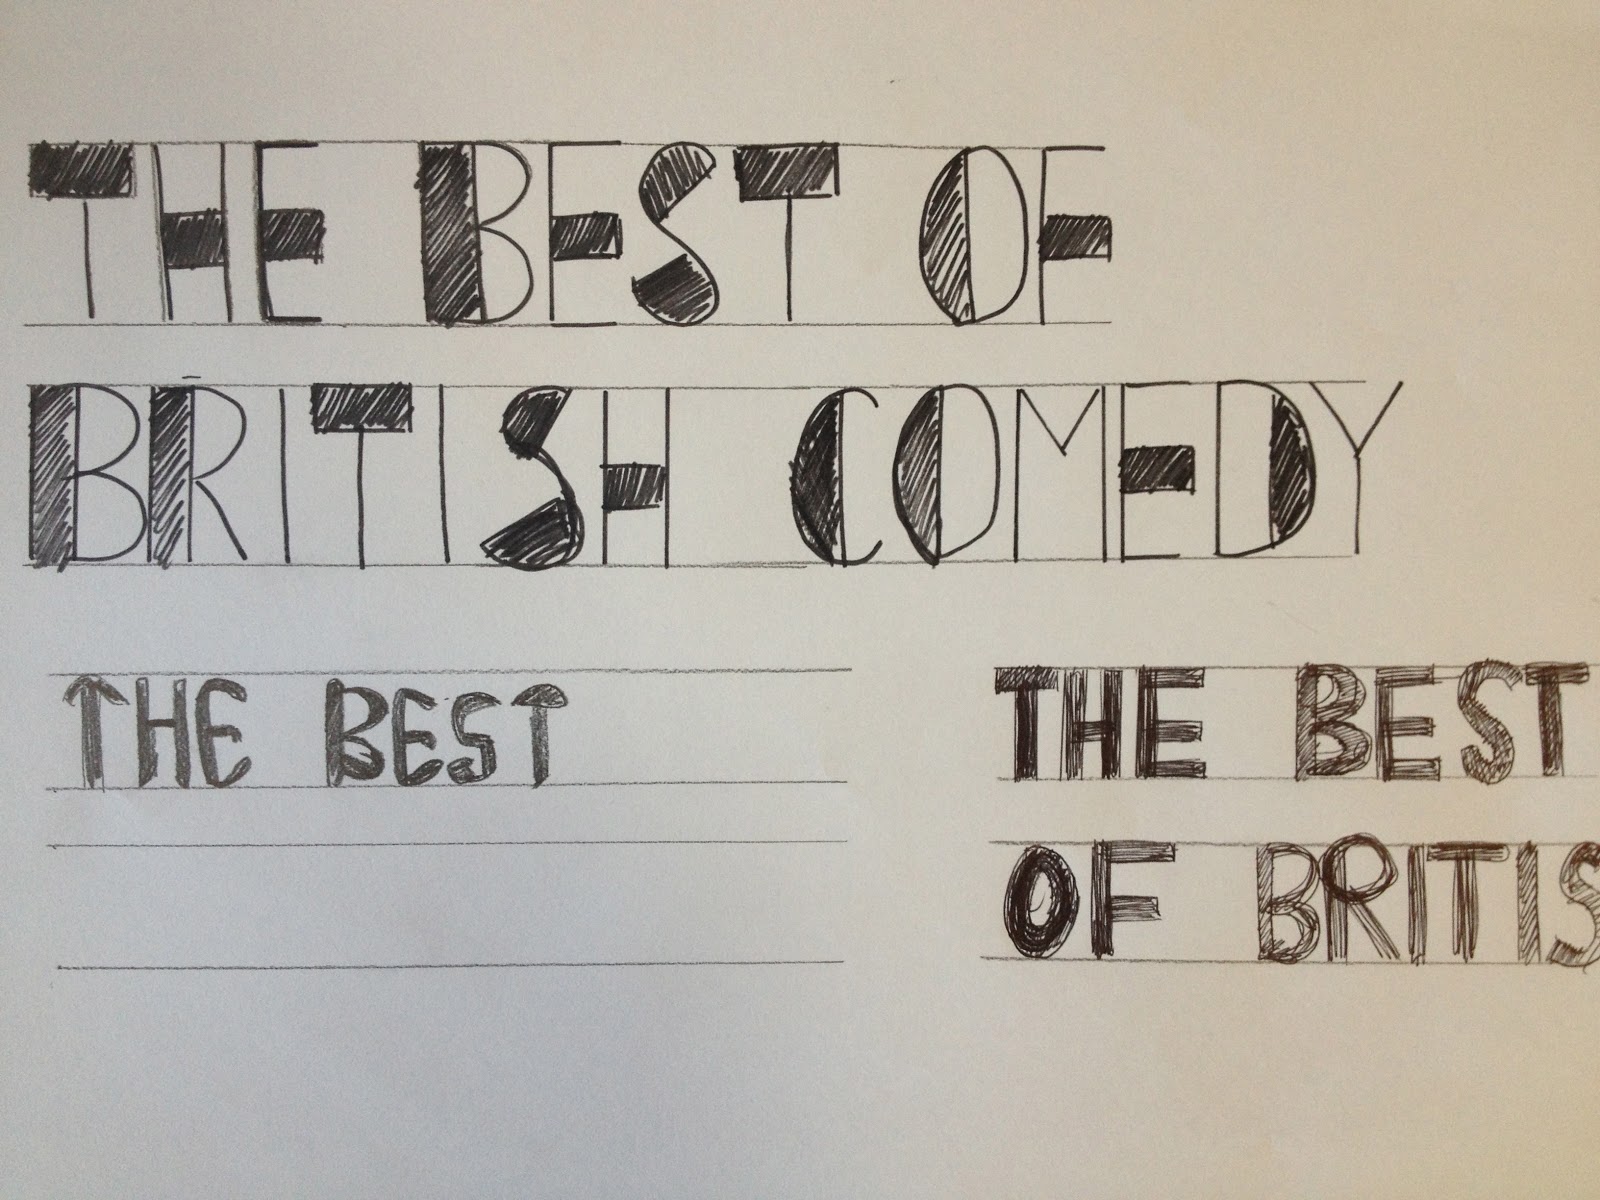 THE BEST OF
BRITISH COMEDY
THE BEST
THE BEST
OF BRITIS